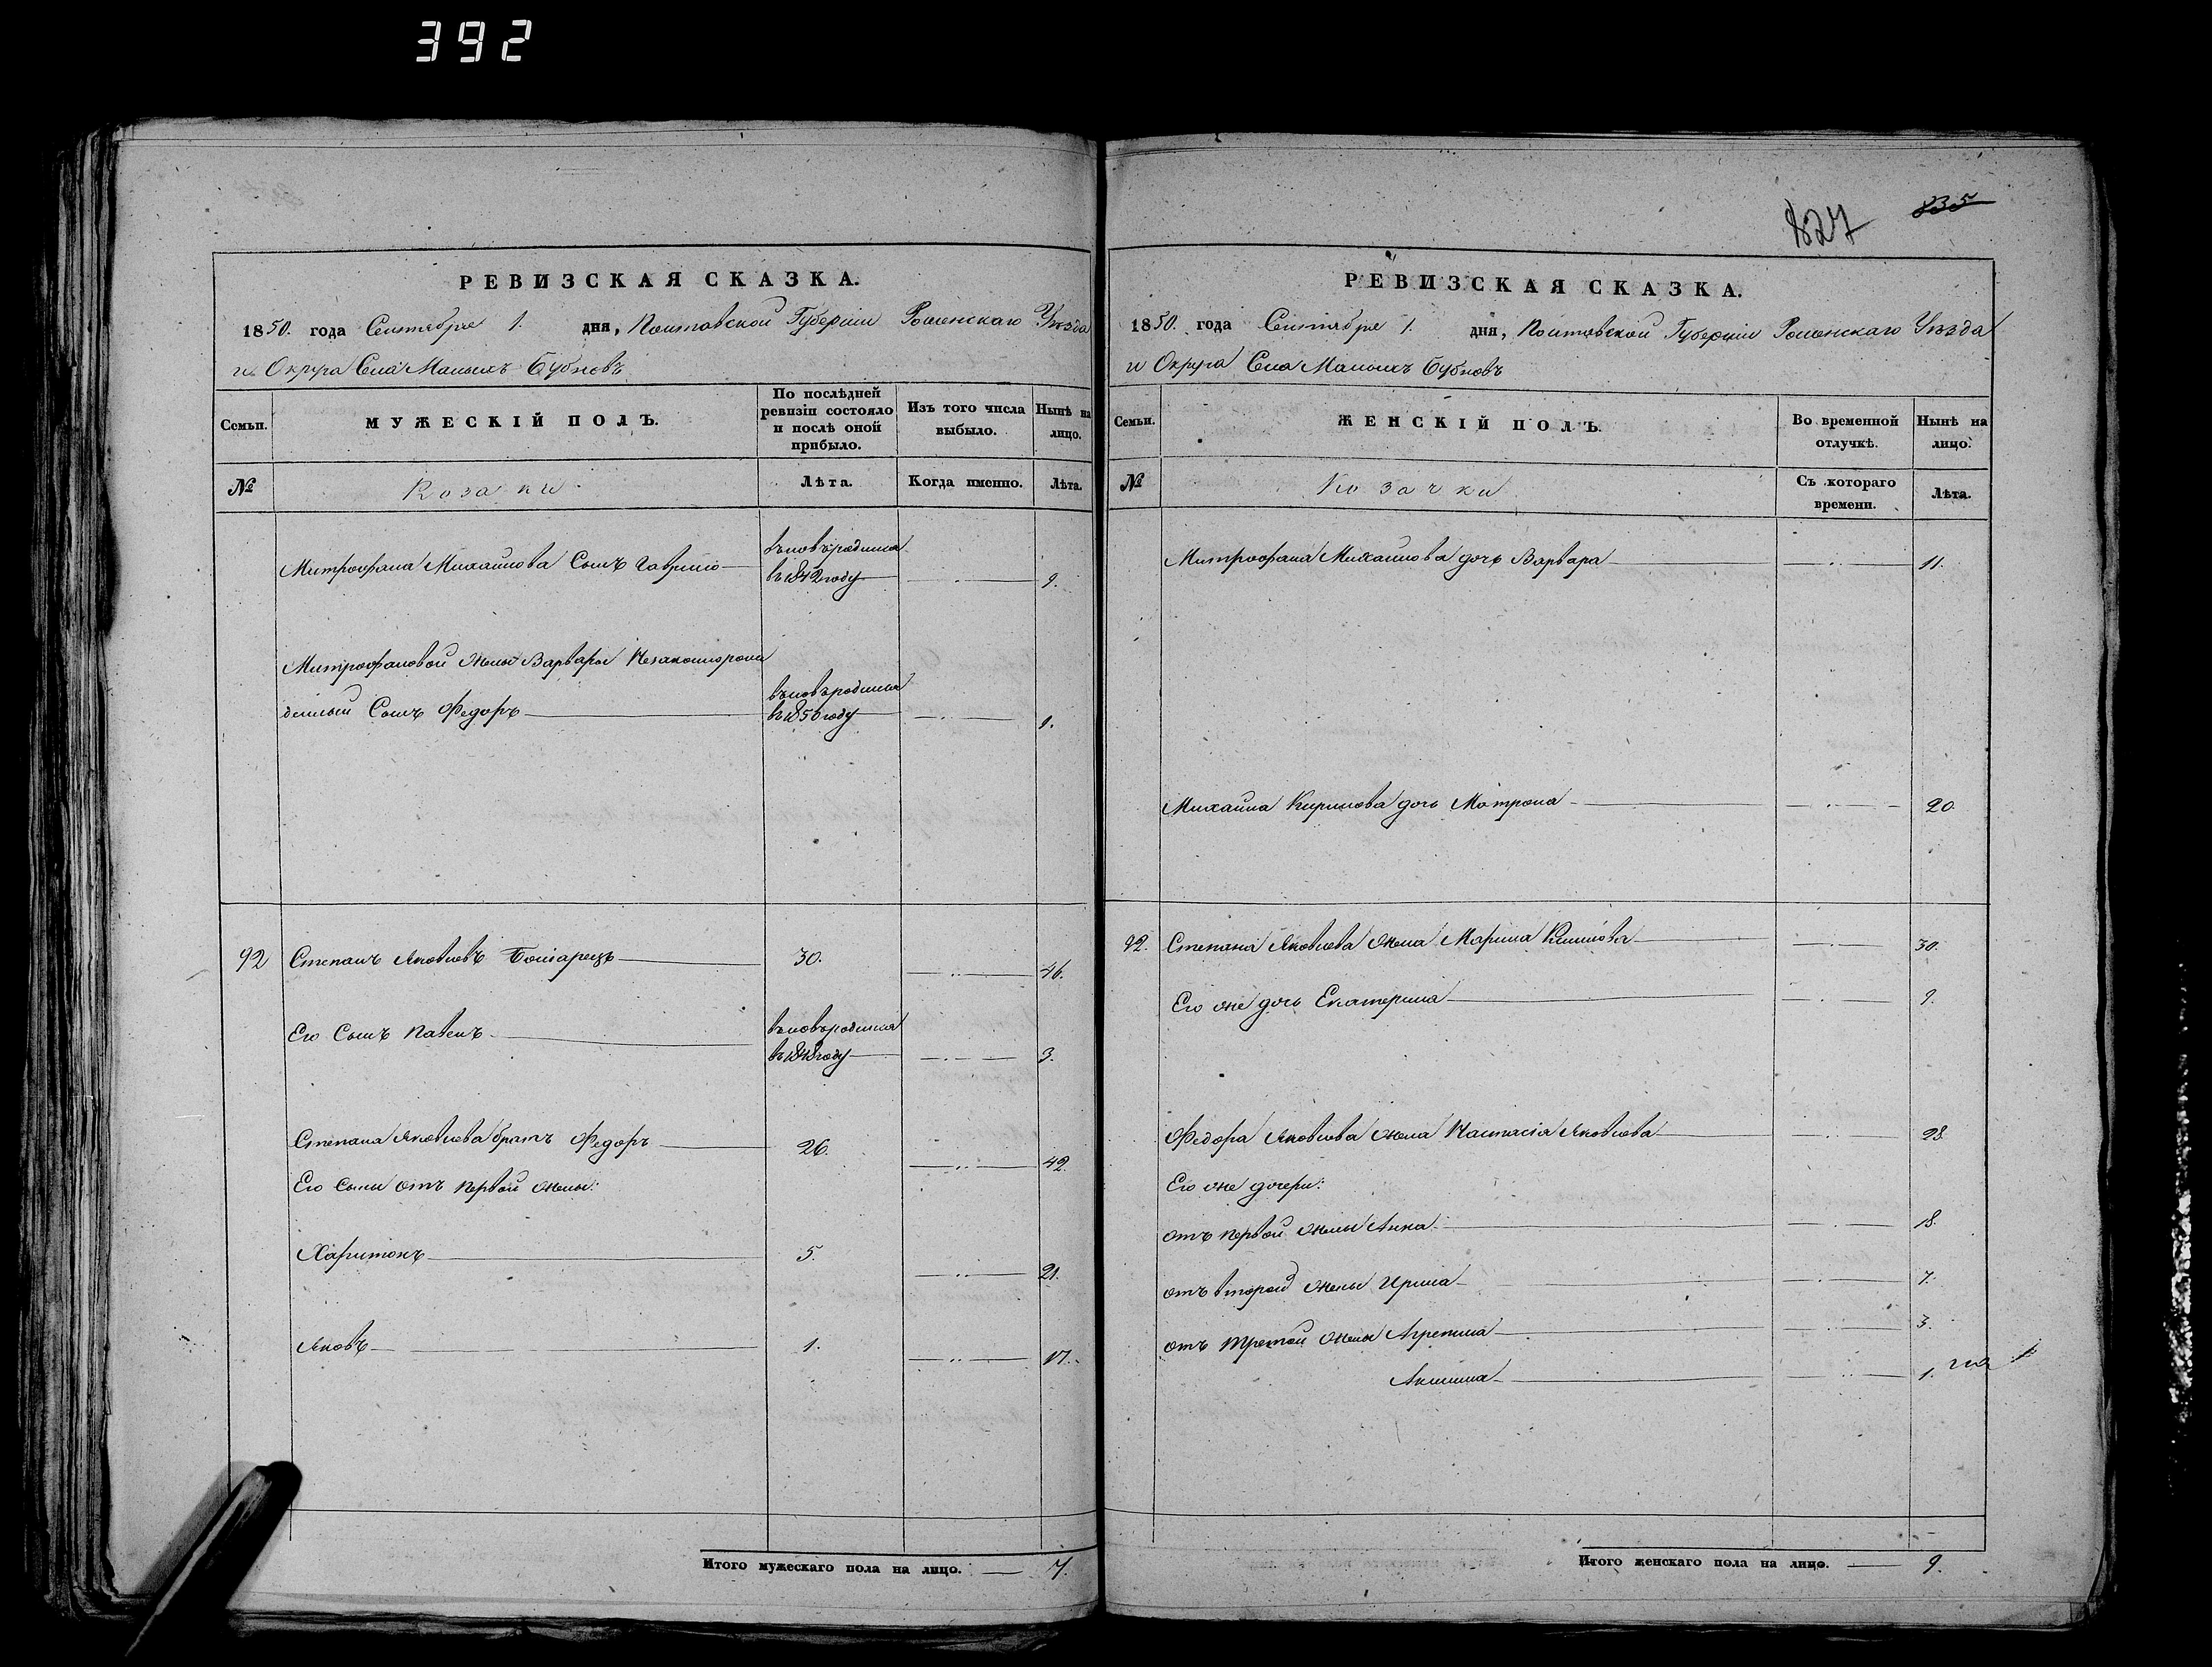 392
827 835
РЕВИЗСКАЯ СКАЗКА.
1850. года Сентября 1. дня, Полтавской Губерніи Роменскаго Уѣзда
и Округа Села Малыхъ Бубновъ
Семьи.
МУЖЕСКІЙ ПОЛЪ.
По послѣдней ревизіи состояло и послѣ оной прибыло.
Изъ того числа выбыло.
Нынѣ на лицо.
№
Козаки
Лѣта.
Когда именно.
Лѣта.
Митрофана Михайлова Сынъ Гаврило вновьродился
въ 1842 году 9.
Митрофановой жены Варвары Незаконнорож
денный Сынъ Федоръ вновьродился
въ 1850 году 1.
92 Степанъ Яковлевъ 30. 46.
Его Сынъ Павелъ вновьродился
въ 1848 году 3.
Степана Яковлева братъ Федоръ 26. 42.
Его Сыны отъ первой жены:
Харитонъ 5. 21.
Яковъ 1. 17.
Итого мужескаго пола на лицо. 7.
РЕВИЗСКАЯ СКАЗКА.
1850. года Сентября 1. дня, Полтавской Губерніи Роменскаго Уѣзда
и Округа Села Малыхъ Бубновъ
Семьи.
ЖЕНСКІЙ ПОЛЪ.
Во временной отлучкѣ.
Нынѣ на лицо.
№
Козачки
Съ котораго времени.
Лѣта.
Митрофана Михайлова дочь Варвара 11.
Михаила Кирилова дочь Матрона 20.
92. Степана Яковлева жена Марина Климова 30.
Его же дочь Екатерина 9.
Федора Яковлева жена Настасія Яковлева 28.
Его же дочери:
отъ первой жены Анна 18.
отъ второй жены Ирина 7.
отъ третей жены Агрепина 3.
Акилина 1.
Итого женскаго пола на лицо. 9.